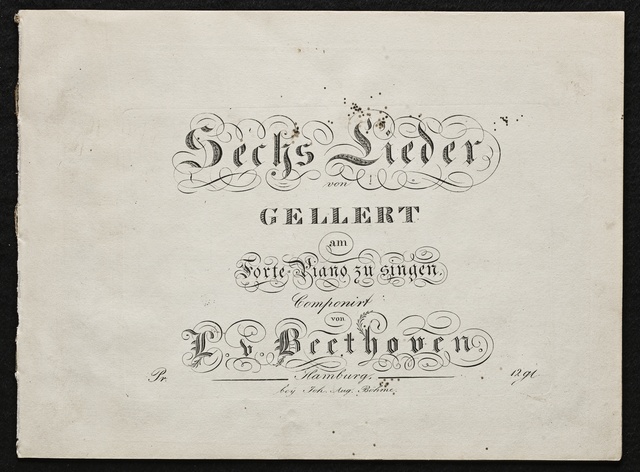 Sechs Lieder
von
GELLERT
am
Forte-Piano zu singen.
Componirt
von
L. v. Beethoven
Pr. Hamburg,
bey Joh. Aug. Böhme.